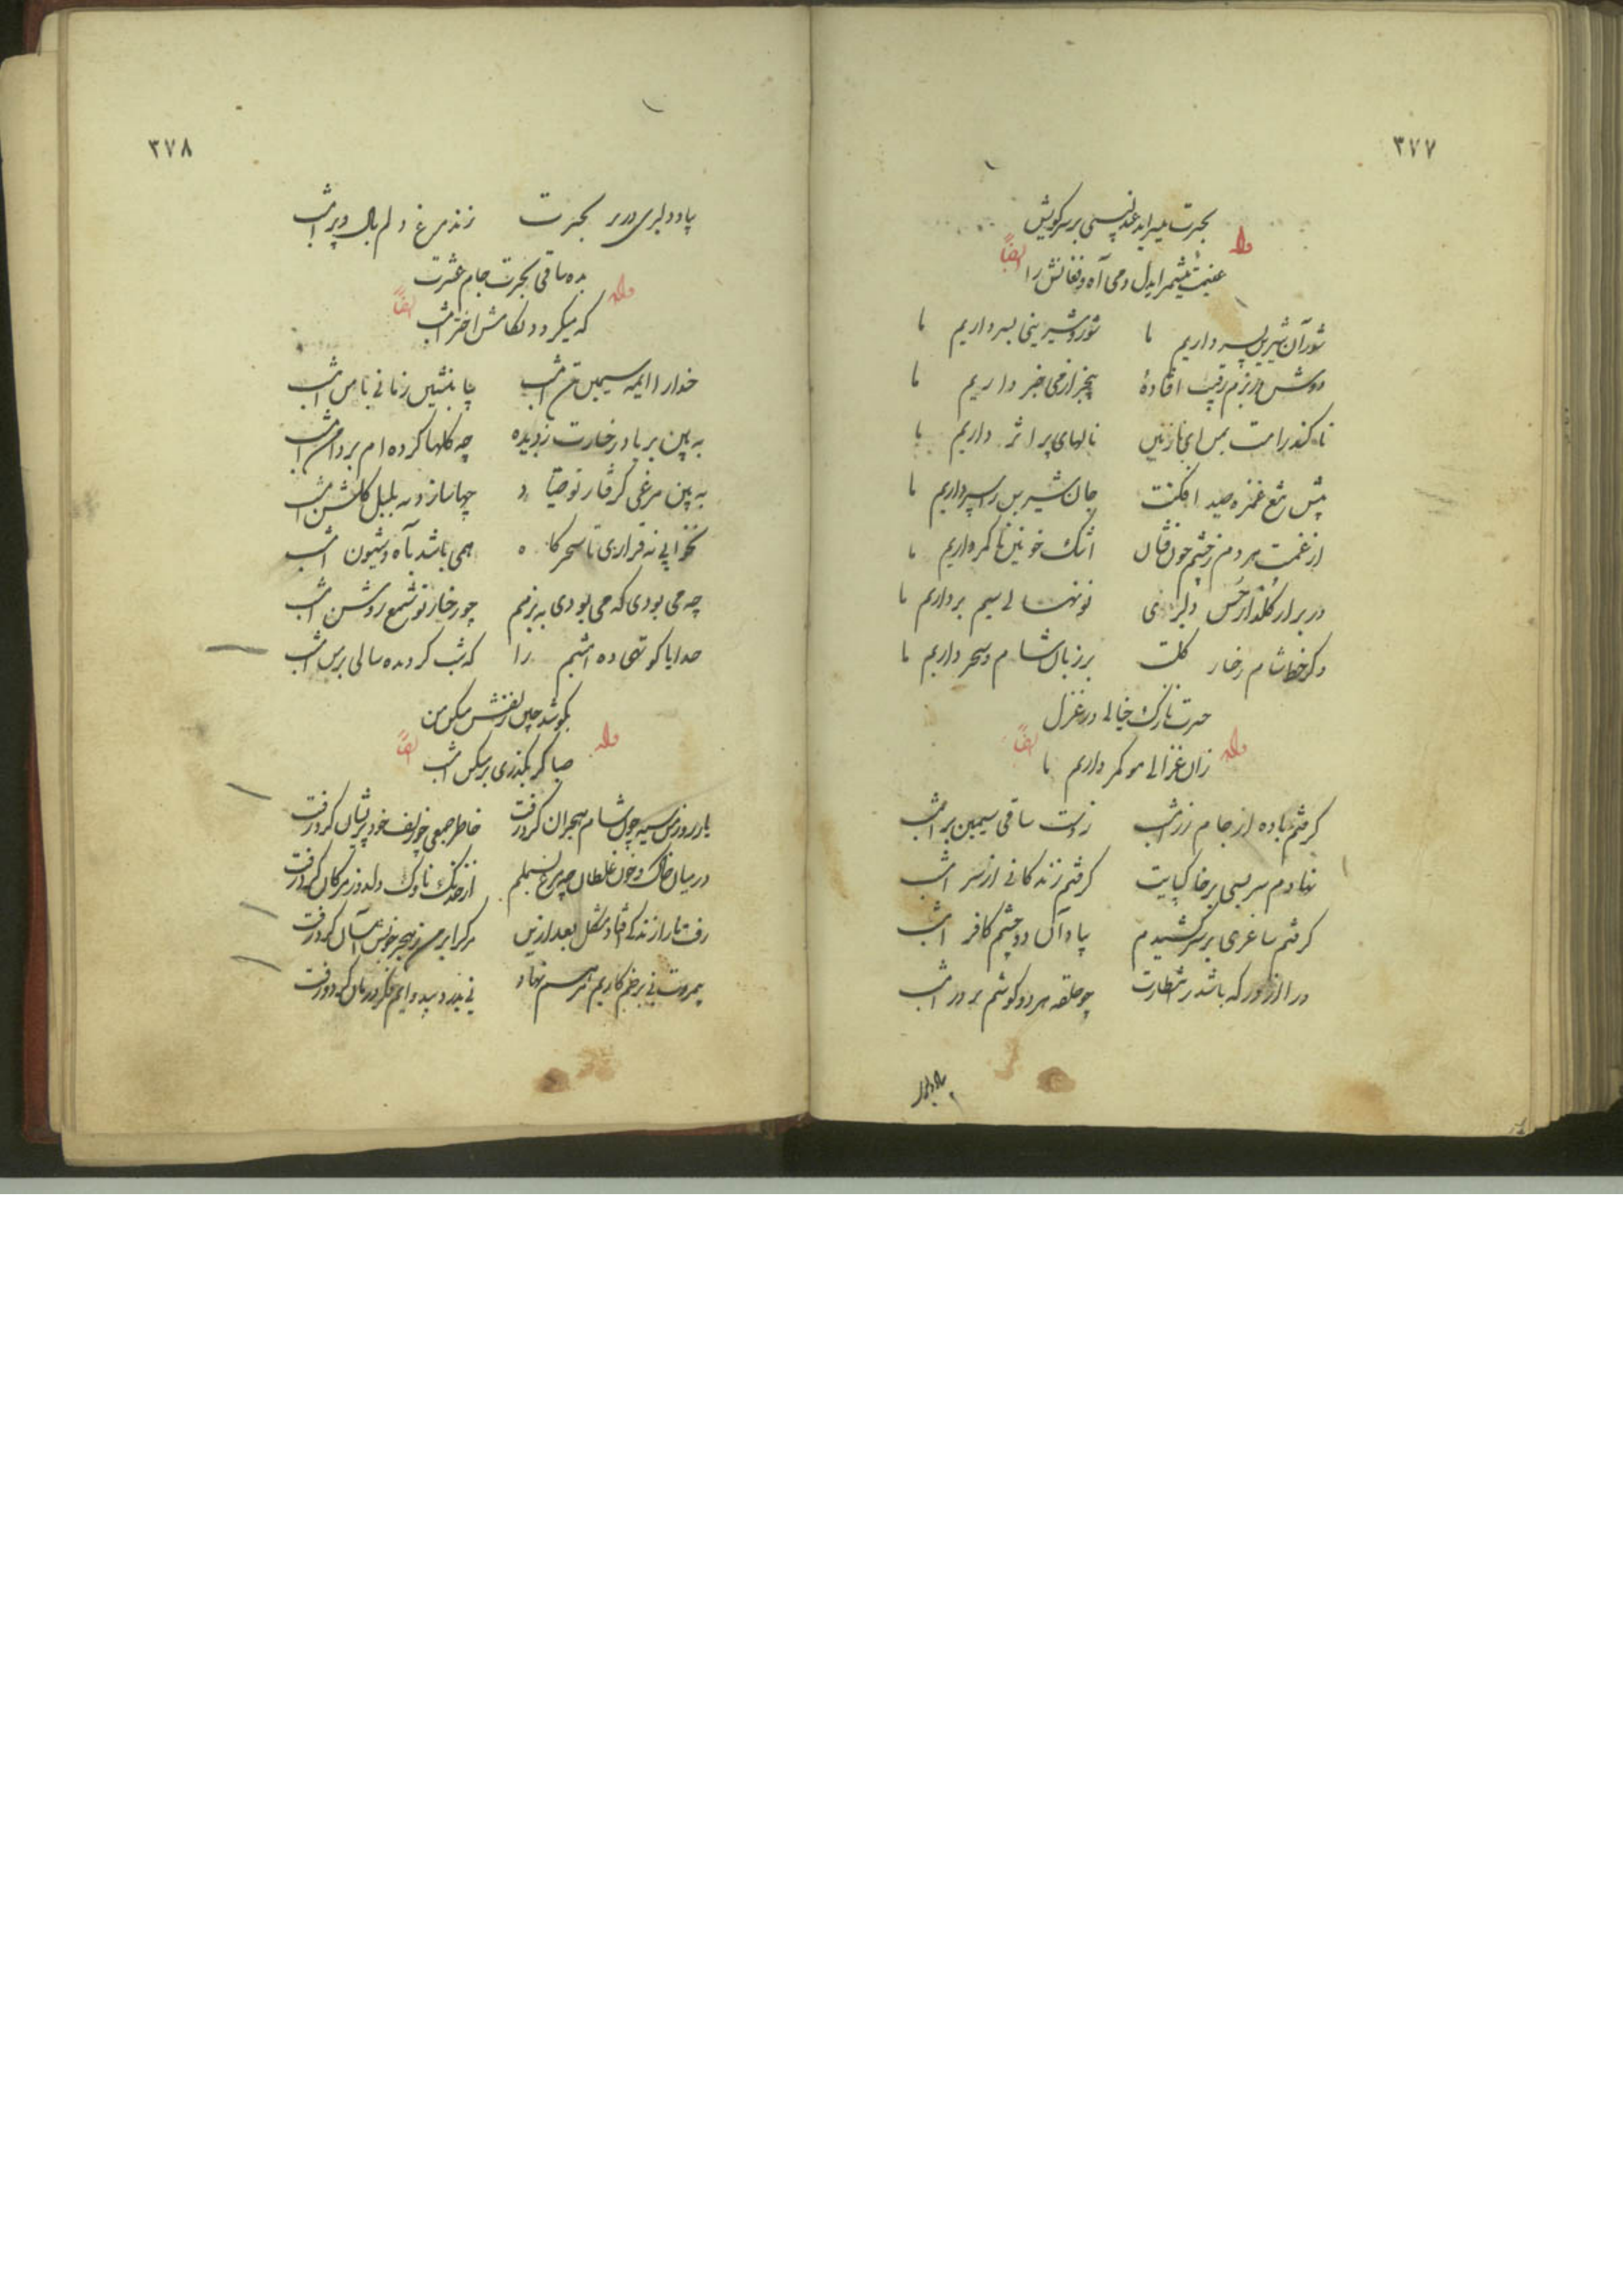 ۳۷۷
بحیرت میسراید عندلیبی بر سر کویش
وله ایضاً
غنیمت میشمر ایدل دمی آه و فغانش را
شور آن شیرین پسر داریم ما شور و شیرینی بسر داریم ما
دوش در بزم رقیب افتادهٔ بیخبر از می خبر داریم ما
تا کند رامت بمن ای نازنین نالهای پر اثر داریم ما
پیش تیغ غمزه صید افکنت جان شیرین را سپر داریم ما
از غمت هر دم ز چشم خون فشان اشک خونین تا کمر داریم ما
در بر از گلذار حسن دلبری نونهالی سیم بر داریم ما
ذکر خط شام رخسار گلت بر زبان شام و سحر داریم ما
حیرت نازک خیالی در غزل
وله ایضاً
زان غزالی مو کمر داریم ما
گرفتم باده از جام زر امشب ز دست ساقی سیمین بر امشب
نهادم سر بسی بر خاکپایت گرفتم زندگانی از سر امشب
گرفتم ساغری بر سر کشیدم بیاد آن دو چشم کافر امشب
درا از در که باشد در انتظارت چو حلقه هر دو گوشم بر در امشب
بیاد دلبری
۳۷۸
بیاد دلبری در بر بحیرت زند مرغ دلم بال و پر امشب
بده ساقی بحیرت جام عشرت
وله ایضاً
که میگردد بکامش اختر امشب
خدا را ای مه سیمین تن امشب بیا بنشین زمانی با من امشب
به بین بر یاد رخسارت ز دیده چه گلها کرده ام بر دامن امشب
به بین مرغی گرفتار تو صیاد چها سازد به بلبل گلشن امشب
نخوابی نه قراری تا سحرگاه همی باشد بآه و شیون امشب
چه می بودی که می بودی به بزمم چو رخسار تو شمع روشن امشب
خدایا کوتهی ده این شبم را که شب گردیده سالی بر من امشب
بگوشد چین زلفش مسکن من
وله ایضاً
صبا گر بگذری بر مسکن امشب
یار روز من سیه چون شام هجران کرد و رفت خاطر جمعی چو زلف خود پریشان کرد و رفت
در میان خاک و خون غلطان چو مرغ بسملم از خدنگ ناوک دلدوز مژگان کرد و رفت
رفت یار از زندگی افتاد مشکل بعد ازین مرگ را بر من ز هجر خویش آسان کرد و رفت
بیمروت نی بزخم کاریم مرهم نهاد نی بدرد بیدوایم فکر درمان کرد و رفت